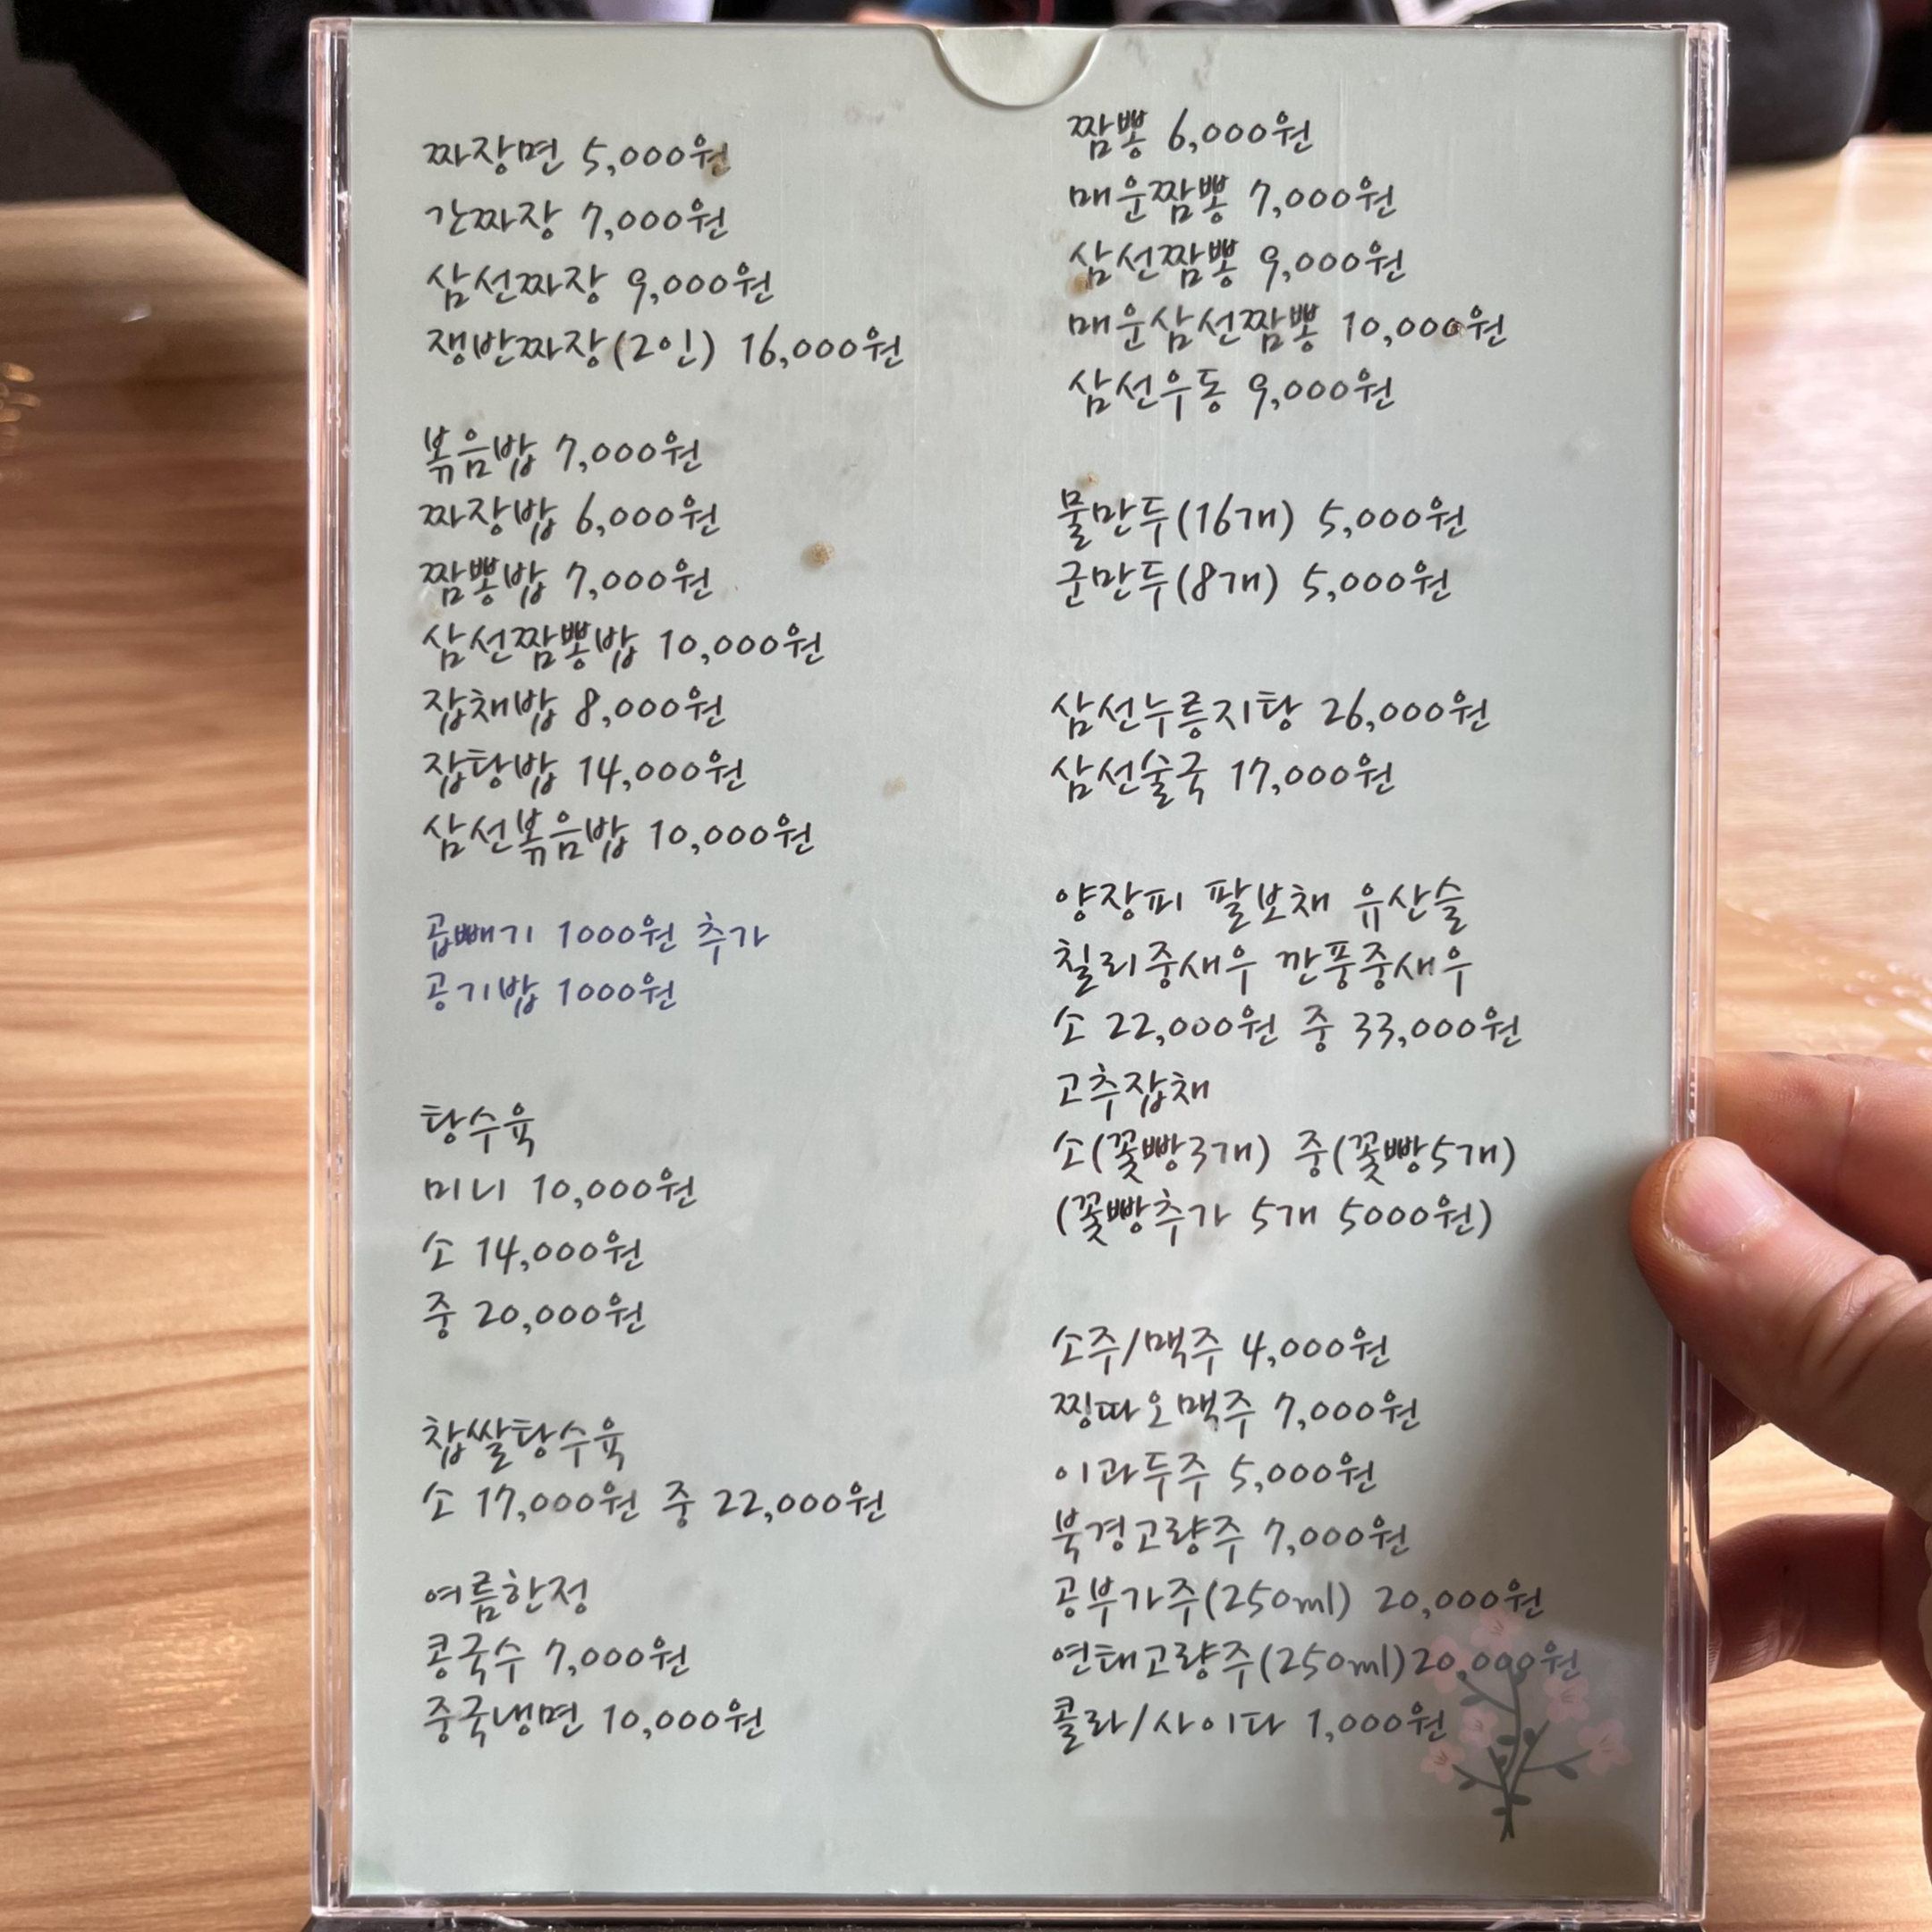 짜장면 5,000원
간짜장 7,000원
삼선짜장 9,000원
쟁반짜장(2인) 16,000원
볶음밥 7,000원
짜장밥 6,000원
짬뽕밥 7,000원
삼선짬뽕밥 10,000원
잡채밥 8,000원
잡탕밥 14,000원
삼선볶음밥 10,000원
곱빼기 1000원 추가
공기밥 1000원
탕수육
미니 10,000원
소 14,000원
중 20,000원
찹쌀탕수육
소 17,000원 중 22,000원
여름한정
콩국수 7,000원
중국냉면 10,000원
짬뽕 6,000원
매운짬뽕 7,000원
삼선짬뽕 9,000원
매운삼선짬뽕 10,000원
삼선우동 9,000원
물만두(16개) 5,000원
군만두(8개) 5,000원
삼선누릉지탕 26,000원
삼선술국 17,000원
양장피 팔보채 유산슬
칠리중새우 깐풍중새우
소 22,000원 중 33,000원
고추잡채
소(꽃빵3개) 중(꽃빵5개)
(꽃빵추가 5개 5000원)
소주/맥주 4,000원
찡따오맥주 7,000원
이과두주 5,000원
북경고량주 7,000원
공부가주(250ml) 20,000원
연태고량주(250ml)20,000원
콜라/사이다 1,000원